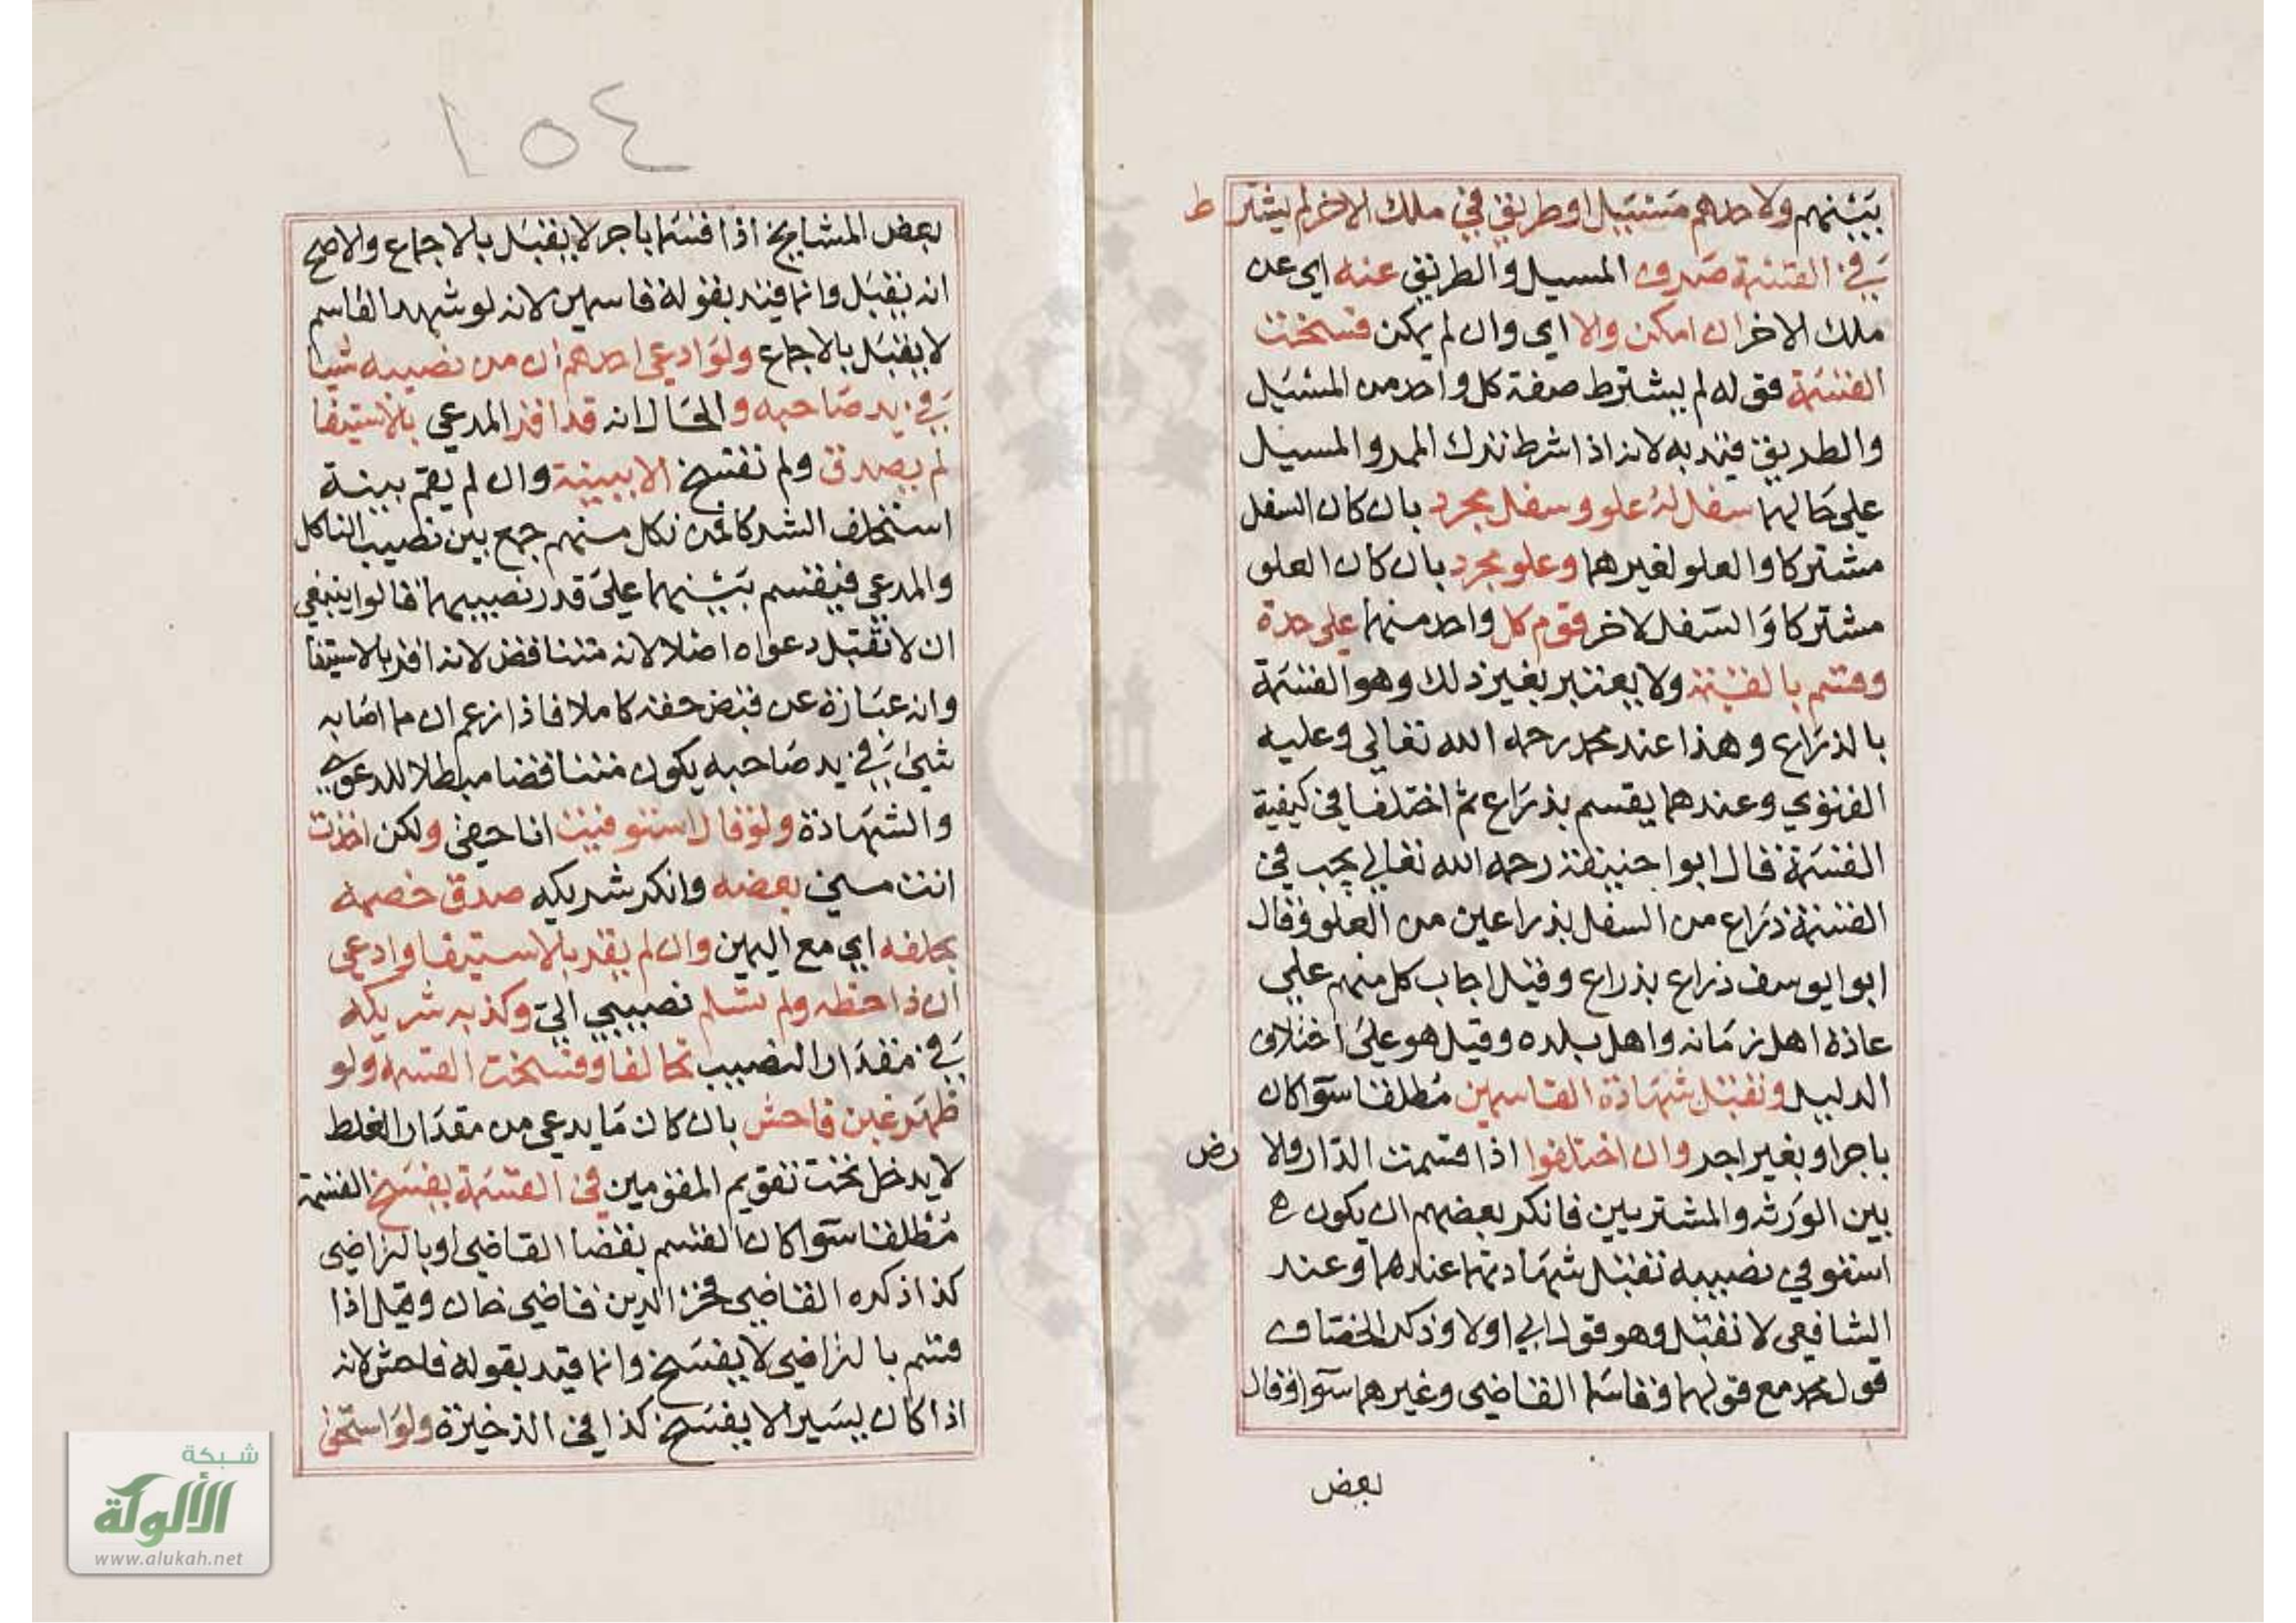 بينهم ولاحدهم مسيل او طريق في ملك الاخر لم يشترط
في القسمة صرف المسيل والطريق عنه اي عن
ملك الاخر ان امكن والا اي وان لم يمكن فسخت
القسمة فقوله لم يشترط صفة كل واحد من المسيل
والطريق قيد به لانه اذا شرط تترك الممر والمسيل
على حالهما سفل له علو وسفل مجرد بان كان السفل
مشتركا والعلو لغيرهما وعلو مجرد بان كان العلو
مشتركا والسفل لاخر قوم كل واحد منهما على حدة
وقسم بالقيمة ولا يعتبر بغير ذلك وهو القسمة
بالذراع وهذا عند محمد رحمه الله تعالى وعليه
الفتوي وعندهما يقسم بذراع ثم اختلفا في كيفية
القسمة فقال ابوا حنيفة رحمه الله تعالى يجب في
القسمة ذراع من السفل بذراعين من العلو وقال
ابوا يوسف ذراع بذراع وقيل اجاب كل منهم على
عادة اهل زمانه واهل بلده وقيل هو على اختلاف
الدليل وتقبل شهادة القاسمين مطلقا سوآ كان
باجر او بغير اجر وان اختلفوا اذا قسمت الدار ولا رض
بين الورثه والمشتريين فانكر بعضهم ان يكون
استوفي نصيبه تقبل شهادتهما عندهما وعند
الشافعي لا تقبل وهو قول ابي اولا وذكر الخصاف
قول محمد مع قولهما وقاسما القاضي وغيرهما سوآ وقال
بعض
١٥٤
بعض المشايخ اذا قسما باجر لا يقبل بالاجماع والاصح
انه يقبل وانما قيد بقوله قاسمين لانه لو شهد القاسم
لا يقبل بالاجماع ولو ادعى احدهم ان من نصيبه شيا
في يد صاحبه والحال انه قد اقر المدعي بالاستيفا
لم يصدق ولم تفسخ الا ببينة وان لم يقم بينة
استحلف الشركا فمن نكل منهم جمع بين نصيب الناكل
والمدعي فيقسم بينهما على قدر نصيبهما قالوا ينبغي
ان لا تقبل دعواه اصلا لانه متناقض لانه اقر بالاستيفا
وانه عبارة عن قبض حقه كاملا فاذا زعم ان ما اصابه
شيئ في يد صاحبه يكون متناقضا مبطلا للدعوي
والشهادة ولو قال استوفيت انا حقي ولكن اخذت
انت مني بعضه وانكر شريكه صدق خصمه
بحلفه اي مع اليمين وان لم يقر بالاستيفا وادعى
ان ذا حظه ولم تسلم نصيبي الي وكذبه شريكه
في مقدار النصيب تحالفا وفسخت القسمة ولو
ظهر غبن فاحش بان كان ما يدعي من مقدار الغلط
لا يدخل تحت تقويم المقومين في القسمة يفسخ القسمة
مطلقا سوآ كان القسم بقضا القاضي او بالتراضي
كذا ذكره القاضي فخر الدين قاضي خان وقيل اذا
قسم بالتراضي لا يفسخ وانما قيد بقوله فاحش لانه
اذا كان يسيرا لا يفسخ كذا في الذخيرة ولو استحق
شبكة
الألوكة
www.alukah.net